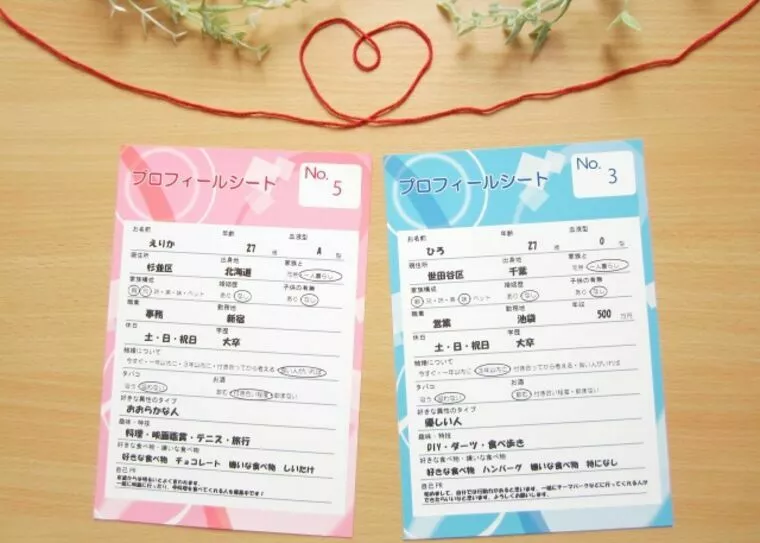 プロフィールシート
No. 5
お名前 年齢 血液型
えりか 27 歳 A 型
現住所 出身地 家族と
杉並区 北海道 一人暮らし
家族構成 婚姻歴 子供の有無
ペット あり なし あり なし
職業 勤務地
事務 新宿
休日 学歴
土・日・祝日 大卒
結婚について
今すぐ・一年以内に・3年以内に・付き合ってから考える・良い人がいれば
タバコ お酒
吸う 吸わない 飲む 付き合い程度・飲まない
好きな異性のタイプ
おおらかな人
趣味・特技
料理・映画鑑賞・テニス・旅行
好きな食べ物・嫌いな食べ物
好きな食べ物 チョコレート 嫌いな食べ物 しいたけ
自己PR
プロフィールシート
No. 3
お名前 年齢 血液型
ひろ 27 歳 O 型
現住所 出身地 家族と
世田谷区 千葉 一人暮らし
家族構成 婚姻歴 子供の有無
ペット あり なし あり なし
職業 勤務地 年収
営業 池袋 500 万円
休日 学歴
土・日・祝日 大卒
結婚について
今すぐ・一年以内に・3年以内に・付き合ってから考える・良い人がいれば
タバコ お酒
吸う 吸わない 飲む 付き合い程度・飲まない
好きな異性のタイプ
優しい人
趣味・特技
DIY・ダーツ・食べ歩き
好きな食べ物・嫌いな食べ物
好きな食べ物 ハンバーグ 嫌いな食べ物 特になし
自己PR